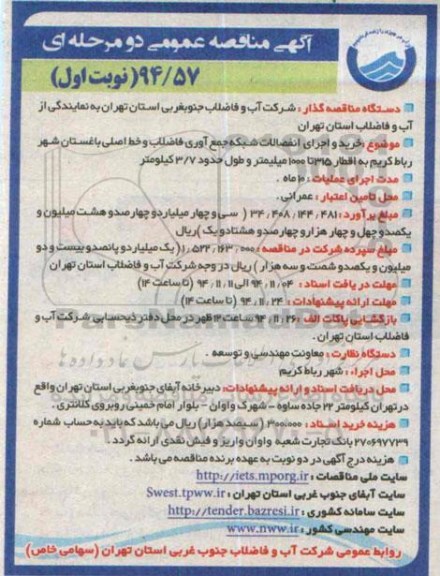 آگهی مناقصه عمومی دو مرحله ای
۹۴/۵۷ (نوبت اول)
دستگاه مناقصه گذار : شرکت آب و فاضلاب جنوبغربی استان تهران به نمایندگی از
آب و فاضلاب استان تهران
موضوع : خرید و اجرای انفصالات شبکه جمع آوری فاضلاب و خط اصلی باغستان شهر
رباط کریم به اقطار ۳۱۵ تا ۱۰۰۰ میلیمتر و طول حدود ۳/۷ کیلومتر
مدت اجرای عملیات : ۱۰ ماه .
محل تامین اعتبار : عمرانی .
مبلغ برآورد : ۳۴,۴۰۸,۱۴۴,۴۸۱ ( سی و چهار میلیارد و چهارصد و هشت میلیون و
یکصد و چهل و چهار هزار و چهارصد و هشتاد و یک ) ریال
مبلغ سپرده شرکت در مناقصه : ۱,۵۲۲,۱۶۳,۰۰۰ ( یک میلیارد و پانصد و بیست و دو
میلیون و یکصد و شصت و سه هزار ) ریال در وجه شرکت آب و فاضلاب استان تهران
مهلت دریافت اسناد : ۹۴,۱۱,۰۴ الی ۹۴,۱۱,۱۱ (تا ساعت ۱۴)
مهلت ارائه پیشنهادات : ۹۴,۱۱,۲۴ (تا ساعت ۱۴)
بازگشایی پاکات الف : ۹۴,۱۱,۲۶ ساعت ۱۲ ظهر در محل دفتر ذیحسابی شرکت آب و
فاضلاب استان تهران .
دستگاه نظارت : معاونت مهندسی و توسعه .
محل اجراء : شهر رباط کریم
محل دریافت اسناد و ارائه پیشنهادات : دبیرخانه آبفای جنوبغربی استان تهران واقع
در تهران کیلومتر ۲۲ جاده ساوه - شهرک واوان - بلوار امام خمینی روبروی کلانتری .
هزینه خرید اسناد : ۳۰۰,۰۰۰ (سیصد هزار) ریال می باشد که باید به حساب شماره
۲۷۰۶۹۷۷۳۹ بانک تجارت شعبه واوان واریز و فیش نقدی ارائه گردد .
هزینه درج آگهی در دو نوبت به عهده برنده مناقصه می باشد .
سایت ملی مناقصات : http://iets.mporg.ir
سایت آبفای جنوب غربی استان تهران : Swest.tpww.ir
سایت سامانه کشوری : http://tender.bazresi.ir
سایت مهندسی کشور : www.nww.ir
روابط عمومی شرکت آب و فاضلاب جنوب غربی استان تهران (سهامی خاص)